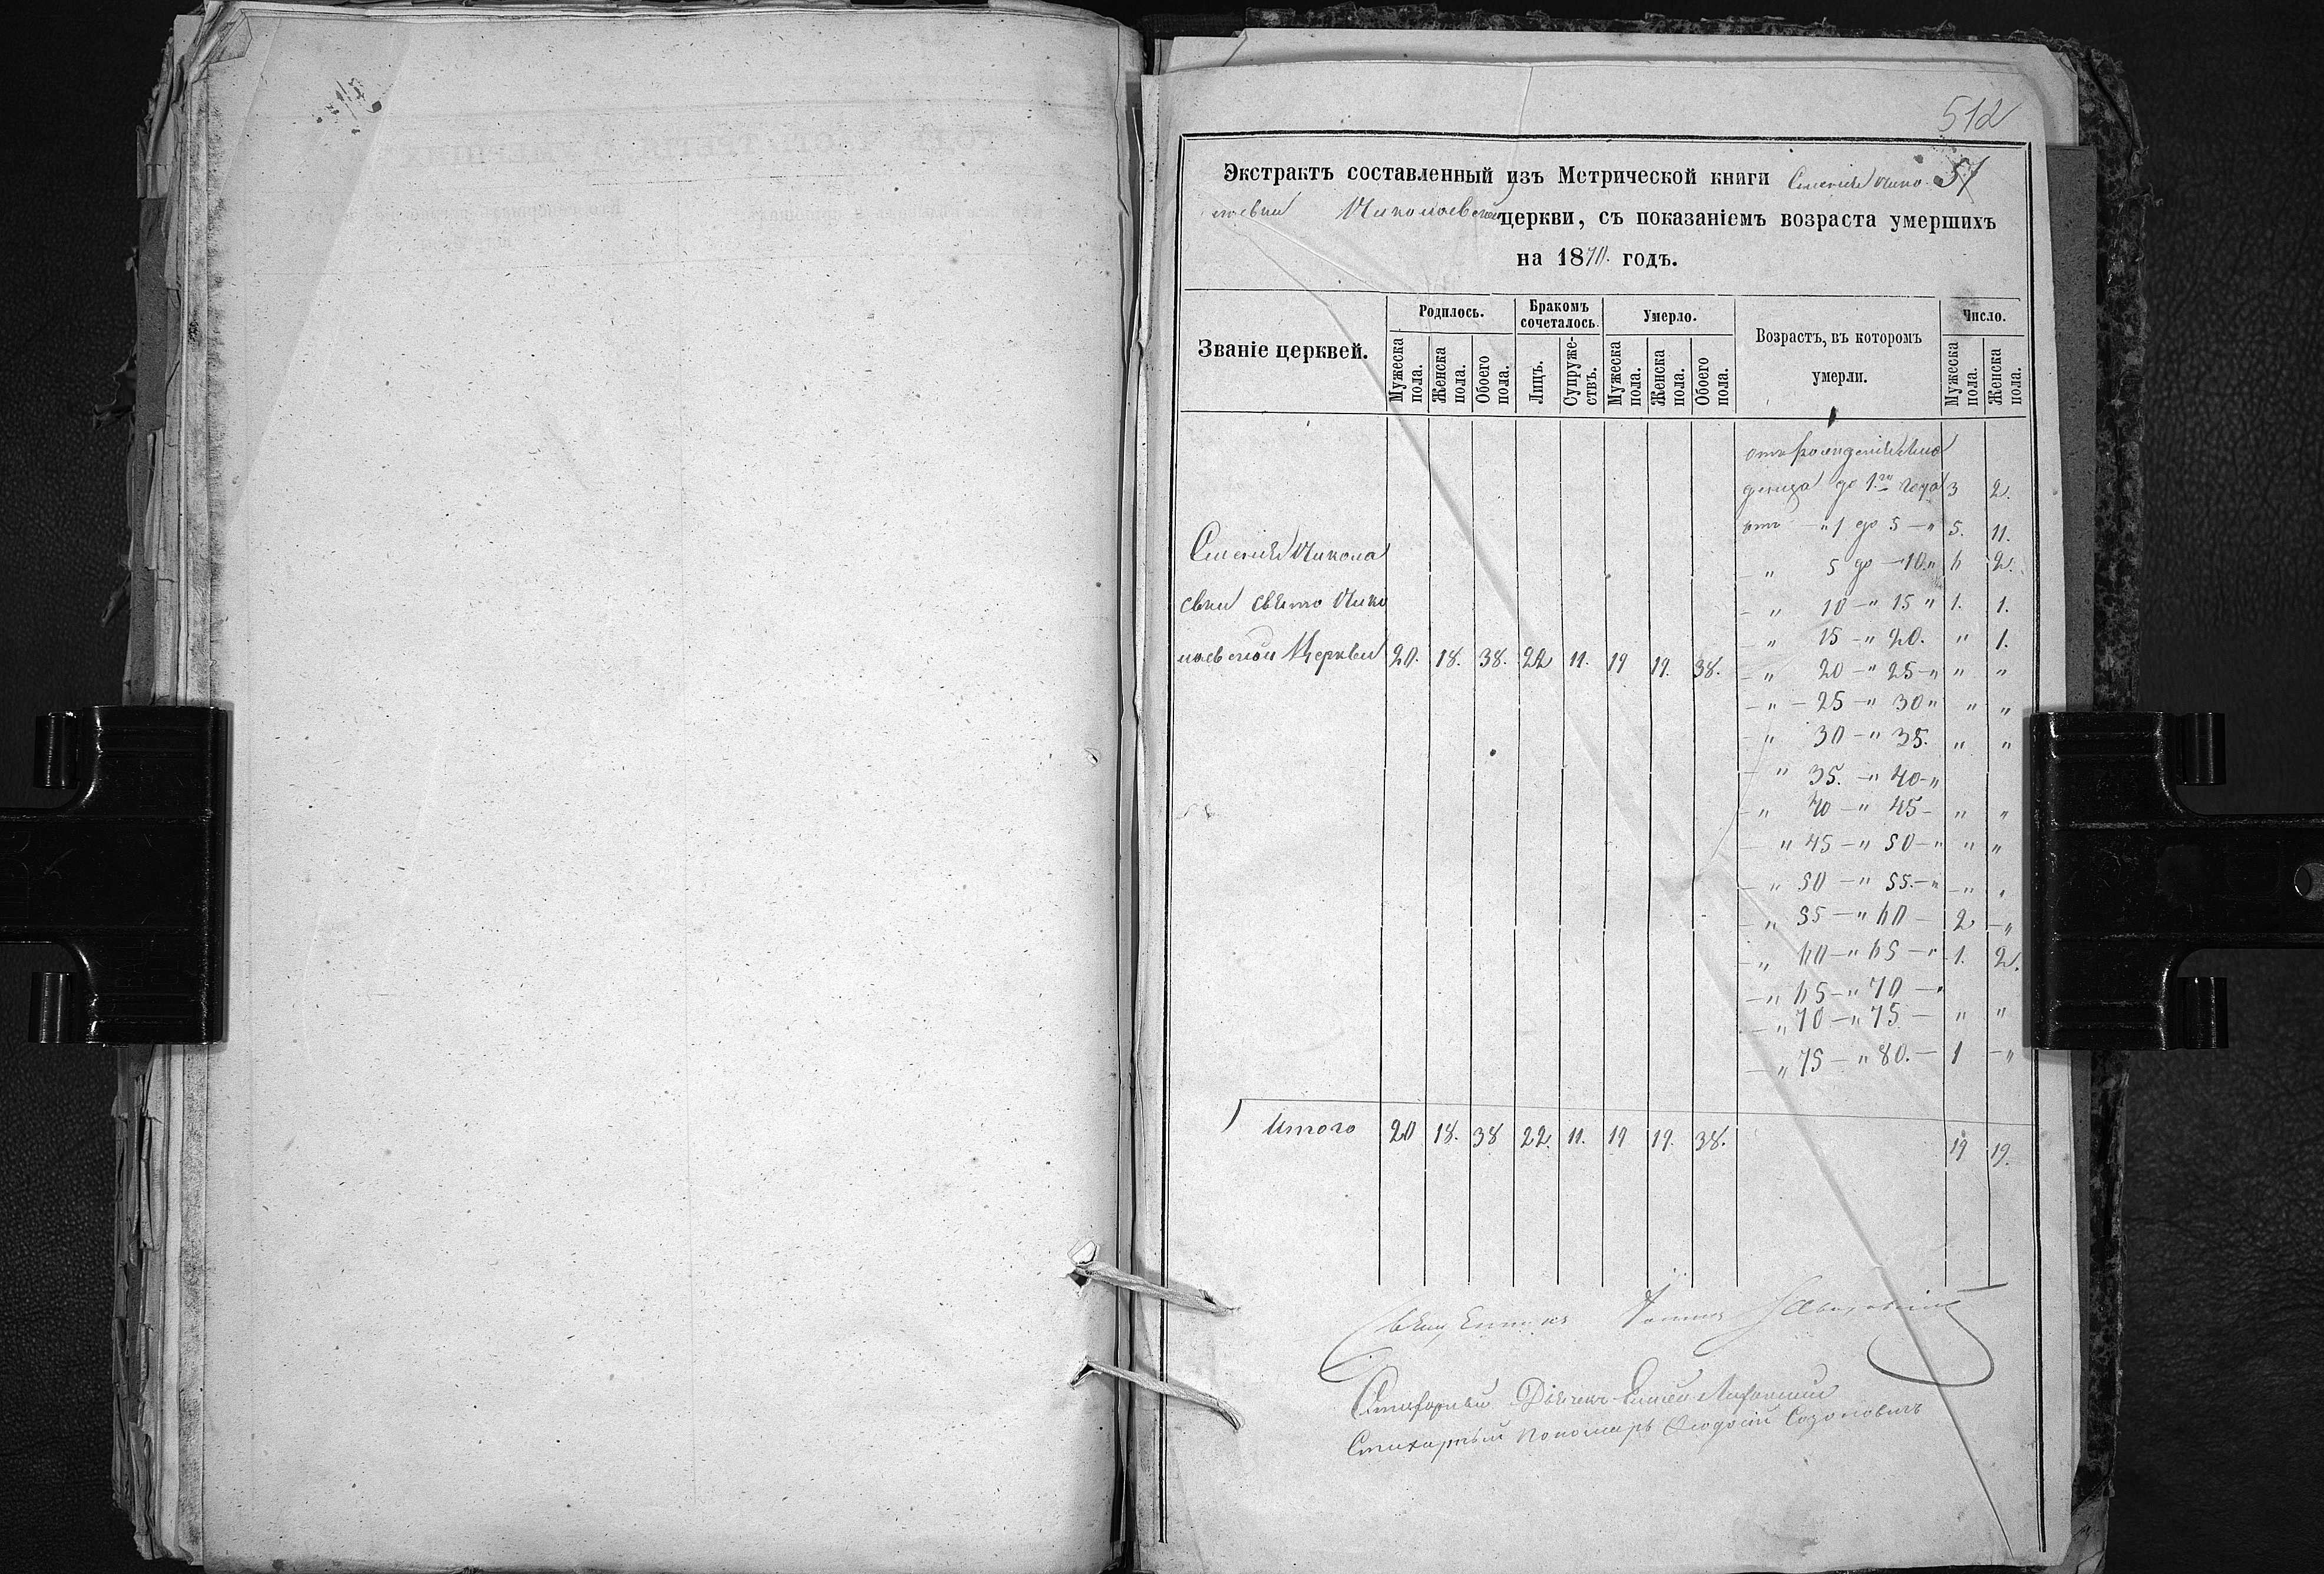 512
Экстрактъ составленный изъ Метрической книги Селенія Нико- 51
лаевки Николаевской церкви, съ показаніемъ возраста умершихъ
на 1870. годъ.
Званіе церквей.
Родилось.
Бракомъ сочеталось.
Умерло.
Возрастъ, въ которомъ умерли.
Число.
Мужеска пола. Женска пола. Обоего пола. Лицъ. Супружествъ. Мужеска пола. Женска пола. Обоего пола. Мужеска пола. Женска пола.
отъ рожденія Мла
денца до 1го года 3 2.
отъ — " 1 до 5 — " 5. 11.
— " 5 до — 10. " 6 2.
— " 10 — " 15 " 1. 1.
— " 15 — " 20. " 1.
— " 20 — " 25 — " " "
— " — 25 — " 30 " " "
— " 30 — " 35. " "
— " 35. — " 40 — "
— " 40 — " 45 — " "
— " 45 — " 50 — " " "
— " 50 — " 55. — " — " "
— " 55 — " 60 — 2 — "
— " 60 — " 65 — " 1. 2.
— " 65 — " 70 — "
— " 70 — " 75 — " "
— " 75 — " 80. — 1 — "
Селенія Никола
евки Свято Нико
лаевской Церкви 20. 18. 38. 22 11. 19 19. 38.
Итого 20 18. 38 22. 11. 19 19. 38. 19 19.
Священникъ Іоаннъ
Стихарный Дьячекъ
Стихарный пономарь Ѳеодосій Созоновичъ